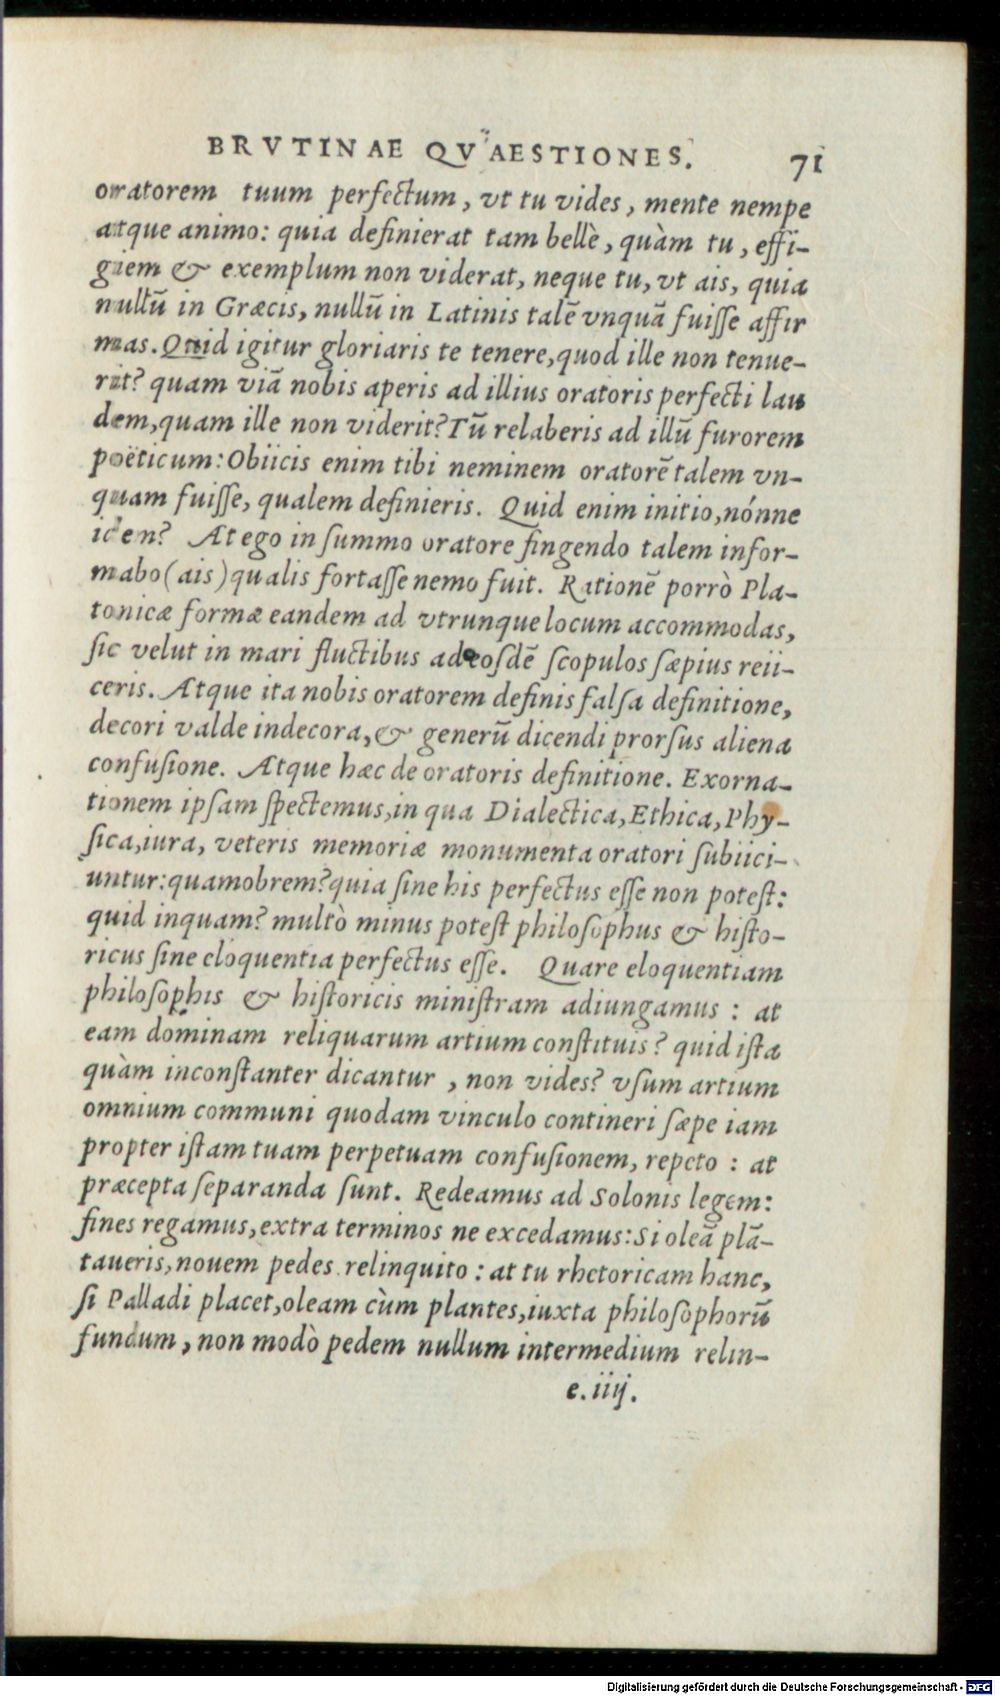 BRVTINAE QVAESTIONES. 71
oratorem tuum perfectum, vt tu vides, mente nempe
atque animo: quia definierat tam bellè, quàm tu, effi-
giem & exemplum non viderat, neque tu, vt ais, quia
nullũ in Græcis, nullũ in Latinis talẽ vnquã fuiſſe affir
mas. Quid igitur gloriaris te tenere, quod ille non tenue-
rit? quam viã nobis aperis ad illius oratoris perfecti lau
dem, quam ille non viderit? Tũ relaberis ad illũ furorem
poëticum: Obiicis enim tibi neminem oratorẽ talem vn-
quam fuiſſe, qualem definieris. Quid enim initio, nónne
idem? At ego in ſummo oratore fingendo talem infor-
mabo (ais) qualis fortaſſe nemo fuit. Rationẽ porrò Pla-
tonicæ formæ eandem ad vtrunque locum accommodas,
ſic velut in mari fluctibus ad eoſdẽ ſcopulos ſæpius reii-
ceris. Atque ita nobis oratorem definis falſa definitione,
decori valde indecora, & generũ dicendi prorſus aliena
confuſione. Atque hæc de oratoris definitione. Exorna-
tionem ipſam ſpectemus, in qua Dialectica, Ethica, Phy-
ſica, iura, veteris memoriæ monumenta oratori ſubiici-
untur: quamobrem? quia ſine his perfectus eſſe non poteſt:
quid inquam? multò minus poteſt philoſophus & hiſto-
ricus ſine eloquentia perfectus eſſe. Quare eloquentiam
philoſophis & hiſtoricis miniſtram adiungamus : at
eam dominam reliquarum artium conſtituis? quid iſta
quàm inconſtanter dicantur, non vides? vſum artium
omnium communi quodam vinculo contineri ſæpe iam
propter iſtam tuam perpetuam confuſionem, repeto : at
præcepta ſeparanda ſunt. Redeamus ad Solonis legem:
fines regamus, extra terminos ne excedamus: Si oleã plã-
taueris, nouem pedes relinquito : at tu rhetoricam hanc,
ſi Palladi placet, oleam cùm plantes, iuxta philoſophorũ
fundum, non modò pedem nullum intermedium relin-
e. iiij.
Digitalisierung gefördert durch die Deutsche Forschungsgemeinschaft - DFG